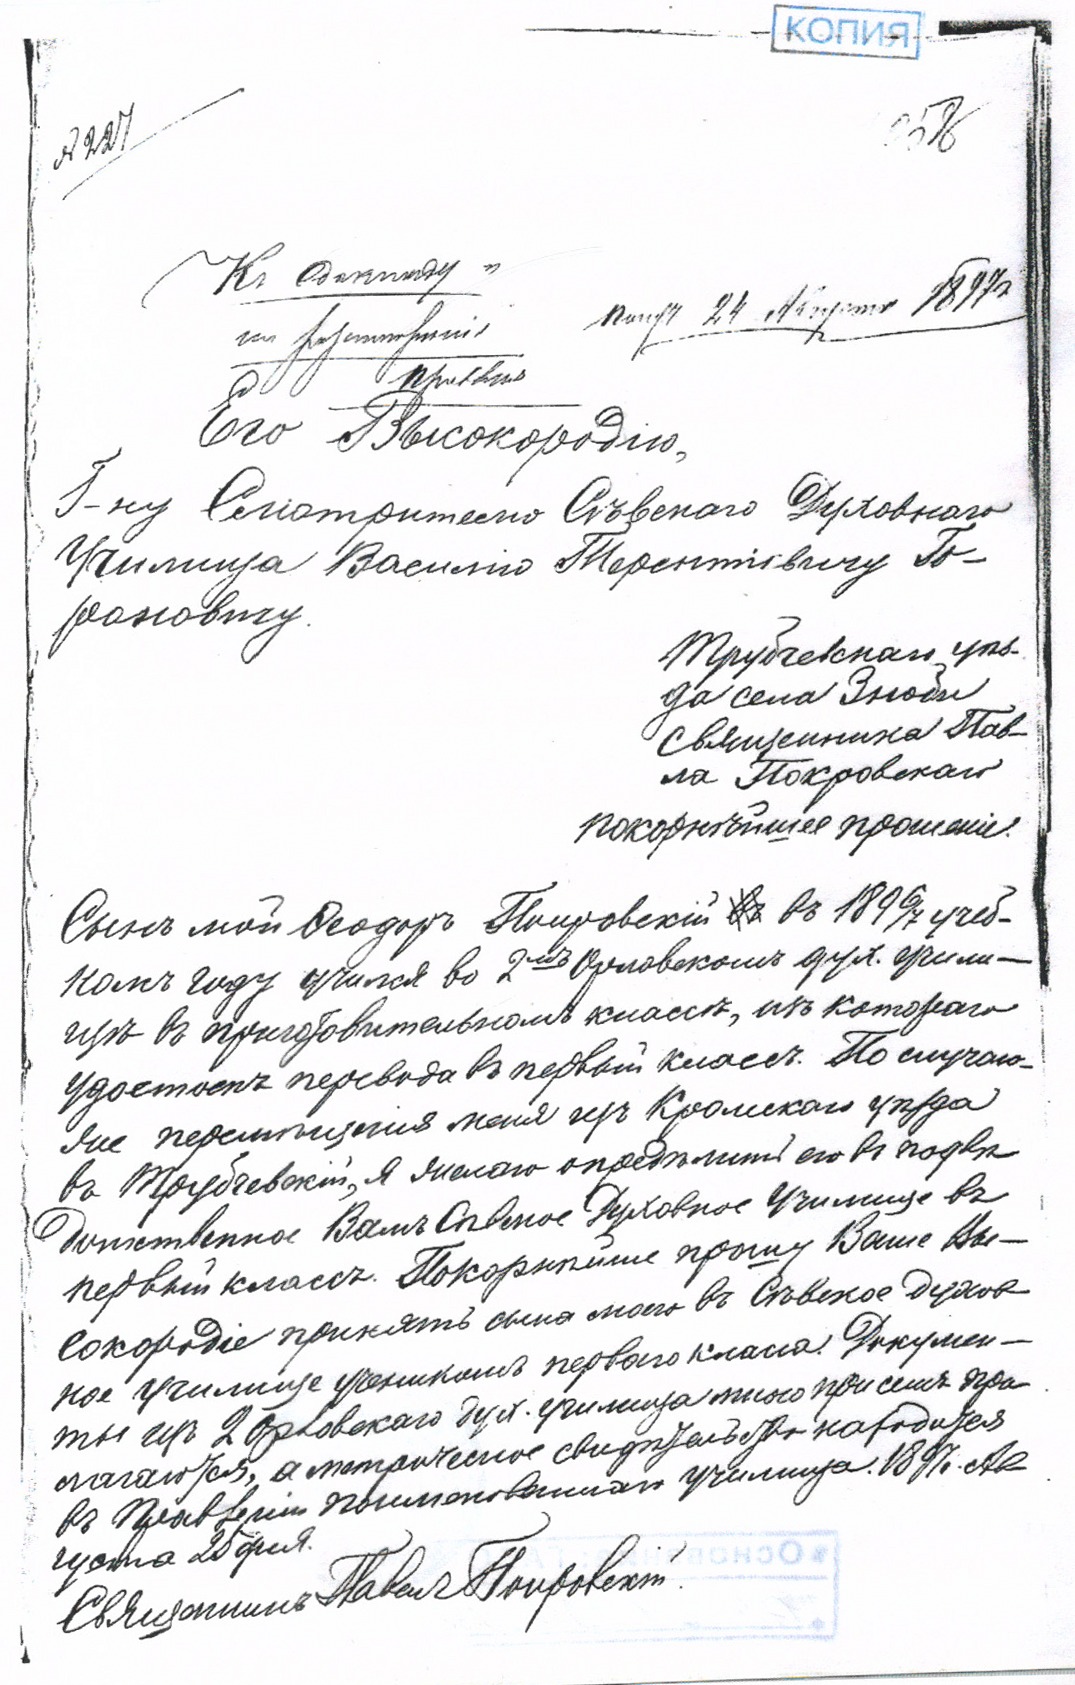 КОПИЯ
№ 227
Къ докладу
на
Правл
получ 24 Августа 1897 г
Его Высокородію,
Г-ну Смотрителю Сѣвскаго Духовнаго
Училища Василію Терентіевичу Го-
рановичу.
Трубчевскаго уѣз-
да села Зноби
священника Пав-
ла Покровскаго
покорнѣйшее прошеніе.
Сынъ мой Ѳеодоръ Покровскій въ 1896/7 учеб-
номъ году учился во 2мъ Орловскомъ дух. учили-
щѣ въ приготовительномъ классѣ, изъ котораго
удостоенъ перевода въ первый классъ. По случаю
же перемѣщенія меня изъ Кромскаго уѣзда
въ Трубчевскій, я желаю опредѣлить его въ подвѣ
домственное Вамъ Сѣвское Духовное Училище въ
первый классъ. Покорнѣйше прошу Ваше Вы-
сокородіе принять сына моего въ Сѣвское духов
ное училище ученикомъ перваго класса. Докумен-
ты изъ 2 Орловскаго дух. училища мною при семъ при
лагаются, а метрическое свидѣтельство находится
въ Правленіи поименованнаго училища. 1897 г. Ав
густа 25 дня.
Священникъ Павелъ Покровскій.